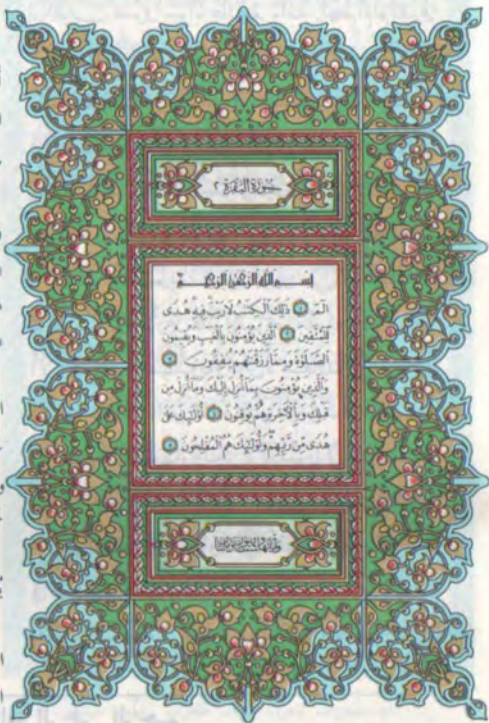 سُورَةُ البَقَرَةِ ٢
بِسْمِ اللَّهِ الرَّحْمَٰنِ الرَّحِيمِ
الٓمٓ ١ ذَٰلِكَ ٱلْكِتَٰبُ لَا رَيْبَ فِيهِ هُدًى
لِّلْمُتَّقِينَ ٢ ٱلَّذِينَ يُؤْمِنُونَ بِٱلْغَيْبِ وَيُقِيمُونَ
ٱلصَّلَوٰةَ وَمِمَّا رَزَقْنَٰهُمْ يُنفِقُونَ ٣
وَٱلَّذِينَ يُؤْمِنُونَ بِمَآ أُنزِلَ إِلَيْكَ وَمَآ أُنزِلَ مِن
قَبْلِكَ وَبِٱلْأَخِرَةِ هُمْ يُوقِنُونَ ٤ أُو۟لَٰٓئِكَ عَلَىٰ
هُدًى مِّن رَّبِّهِمْ وَأُو۟لَٰٓئِكَ هُمُ ٱلْمُفْلِحُونَ ٥